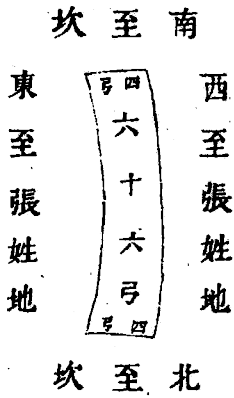 南至坎
西至張姓地
四弓
六十六弓
四弓
東至張姓地
北至坎